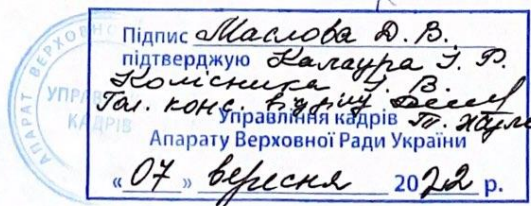 АПАРАТ ВЕРХОВНО
УПРА
КАДРІВ
Підпис Маслова Д. В.
підтверджую Калаура І. Р.
Колісника І. В.
Гол. конс. відділу
Управління кадрів
Апарату Верховної Ради України
« 07 » вересня 2022 р.